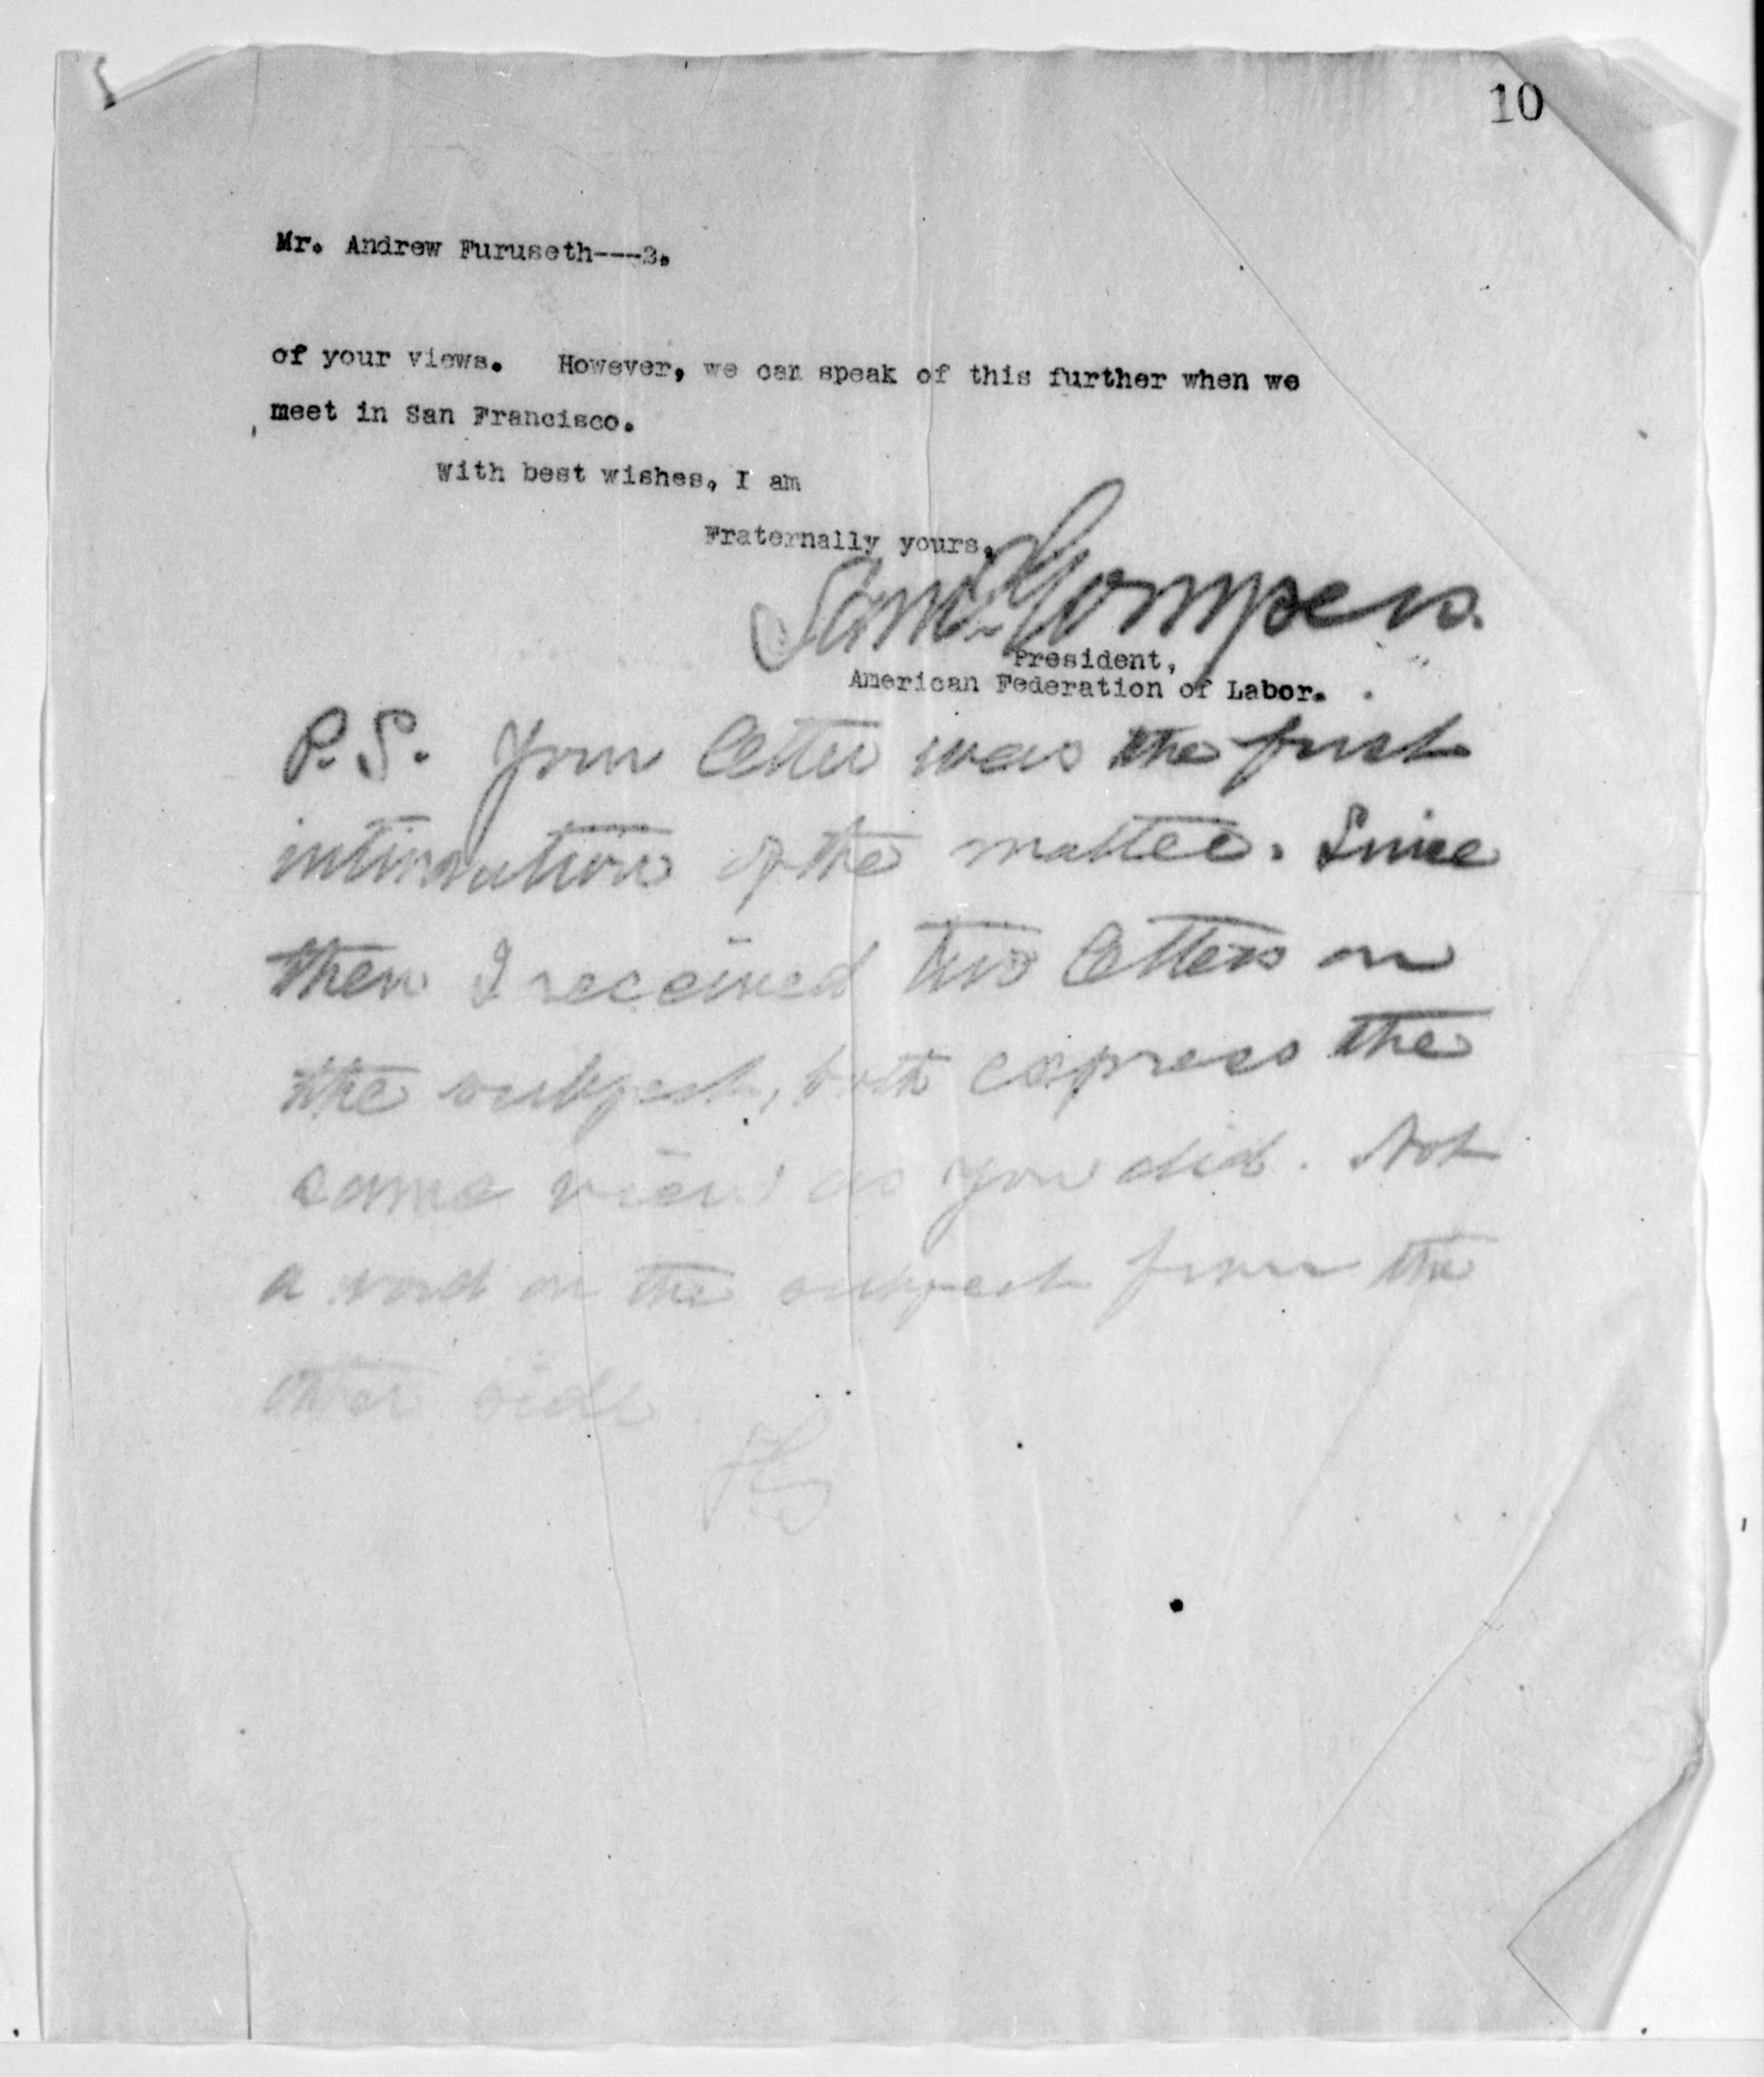 10
Mr. Andrew Furuseth---2.
of your views. However, we can speak of this further when we
meet in San Francisco.
With best wishes, I am
Fraternally yours,
Saml Gompers.
President,
American Federation of Labor.
P.S. Your letter was the first
intimation of the matter. Since
then I received two letters on
the subject, both express the
same view as you did. Not
a word on the subject from the
other side